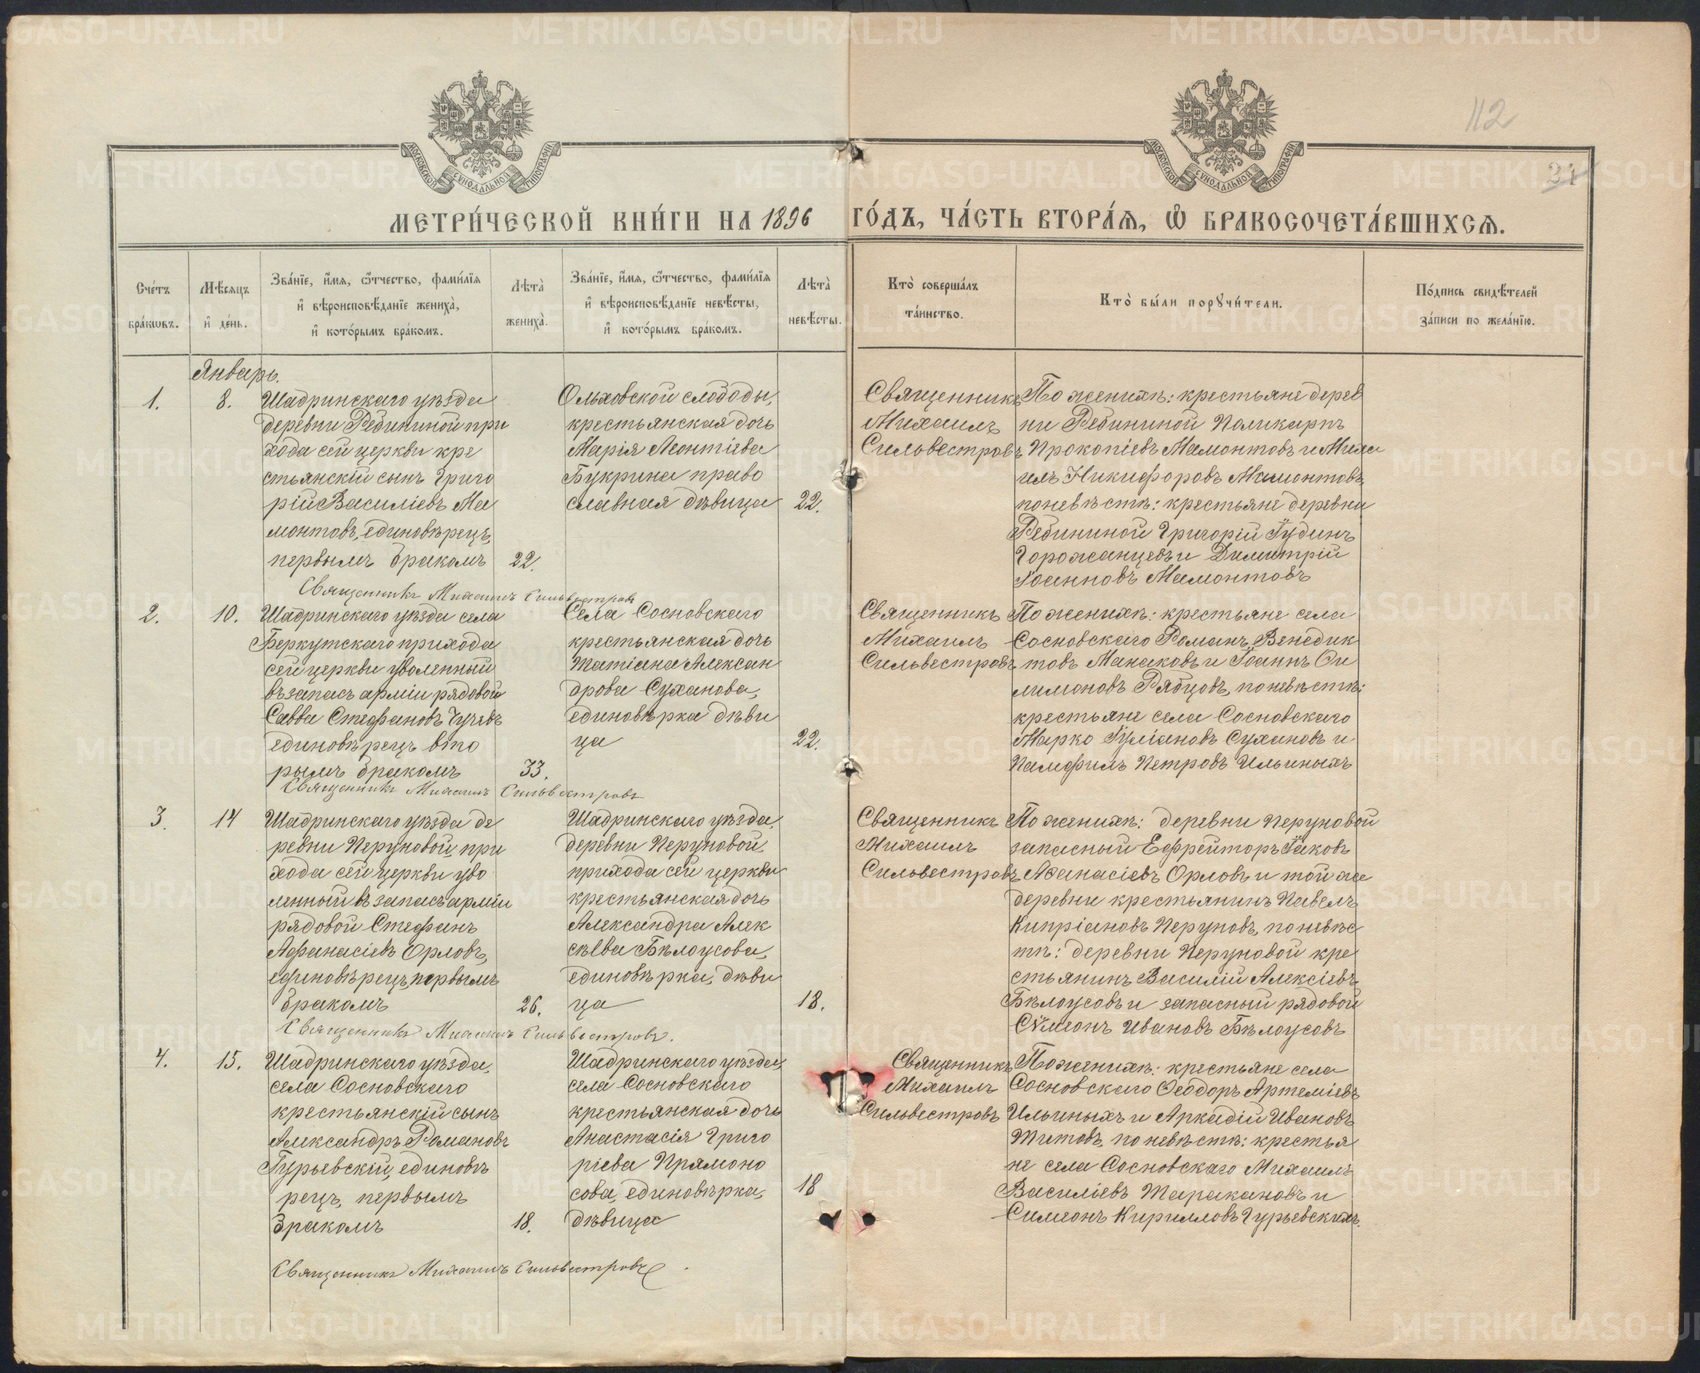 112
34
МЕТРИ́ЧЕСКОЙ КНИ́ГИ НА 1896 ГО́ДЪ, ЧА́СТЬ ВТОРА́Я, Ѿ БРАКОСОЧЕТА́ВШИХСЯ.
Сче́тъ бра́ковъ.
Мѣ́сяцъ и҆ де́нь.
Зва́нїе, и҆́мя, ѻ҆́тчество, фами́лїя и҆ вѣроисповѣ́данїе жениха̀, и҆ кото́рымъ бра́комъ.
Лѣ́та̀ жениха̀.
Зва́нїе, и҆́мя, ѻ҆́тчество, фами́лїя и҆ вѣроисповѣ́данїе невѣ́сты, и҆ кото́рымъ бра́комъ.
Лѣ́та̀ невѣ́сты.
Кто̀ соверша́лъ та́инство.
Кто̀ бы́ли порꙋчи́тели.
По́дпись свидѣ́телей за́писи по жела́нїю.
Январь.
1.
8.
Шадринскаго уѣзда
деревни Рябининой при
хода сей церкви кре
стьянскій сынъ Григо
рій Василіевъ Ма
монтовъ, единовѣрецъ,
первымъ бракомъ
22.
Ольховской слободы,
крестьянская дочь
Марія Леонтіева
Букрина право
славная дѣвица
22.
Священникъ
Михаилъ
Сильвестровъ
По женихѣ: крестьяне дерев
ни Рябининой Поликарпъ
Прокопіевъ Мамонтовъ и Миха
илъ Никифоровъ Мамонтовъ,
по невѣстѣ: крестьяне деревни
Рябининой Григорій Гудинъ
Горожанцевъ и Димитрій
Іоанновъ Мамонтовъ
Священникъ Михаилъ Сильвестровъ
2.
10.
Шадринскаго уѣзда села
Беркутскаго прихода
сей церкви уволенный
въ запасъ арміи рядовой
Савва Стефановъ Чучевъ
единовѣрецъ вто
рымъ бракомъ
33.
Села Сосновскаго
крестьянская дочь
Татіана Алексан
дрова Суханова,
единовѣрка дѣви
ца
22.
Священникъ
Михаилъ
Сильвестровъ
По женихѣ: крестьяне села
Сосновскаго Романъ Венедик
товъ Манаковъ и Іоаннъ Фи
лимоновъ Рябцовъ, по невѣстѣ:
крестьяне села Сосновскаго
Марко Іуліановъ Сухановъ и
Памфилъ Петровъ Ильиныхъ
Священникъ Михаилъ Сильвестровъ
3.
14
Шадринскаго уѣзда де
ревни Перуновой при
хода сей церкви уво
ленный въ запасъ арміи
рядовой Стефанъ
Афанасіевъ Орловъ,
единовѣрецъ, первымъ
бракомъ
26.
Шадринскаго уѣзда,
деревни Перуновой
прихода сей церкви
крестьянская дочь
Александра Алек
сѣева Бѣлоусова,
единовѣрка, дѣви
ца
18.
Священникъ
Михаилъ
Сильвестровъ
По женихѣ: деревни Перуновой
запасный Ефрейторъ Іаковъ
Афанасіевъ Орловъ и той же
деревни крестьянинъ Павелъ
Кипріановъ Перуновъ, по невѣс
тѣ: деревни Перуновой кре
стьянинъ Василій Алексіевъ
Бѣлоусовъ и запасный рядовой
Сѵмеонъ Ивановъ Бѣлоусовъ
Священникъ Михаилъ Сильвестровъ.
4.
15.
Шадринскаго уѣзда,
села Сосновскаго
крестьянскій сынъ
Александръ Романовъ
Гурьевскій, единовѣ
рецъ, первымъ
бракомъ
18.
Шадринскаго уѣзда,
села Сосновскаго
крестьянская дочь
Анастасія Григо
ріева Прямоно
сова, единовѣрка,
дѣвица
18
Священникъ
Михаилъ
Сильвестровъ
По женихѣ: крестьяне села
Сосновскаго Ѳеодоръ Артеміевъ
Ильиныхъ и Аркадій Ивановъ
Титовъ, по невѣстѣ: крестья
не села Сосновскаго Михаилъ
Василіевъ Таракановъ и
Симеонъ Кирилловъ Гурьевскихъ.
Священникъ Михаилъ Сильвестровъ